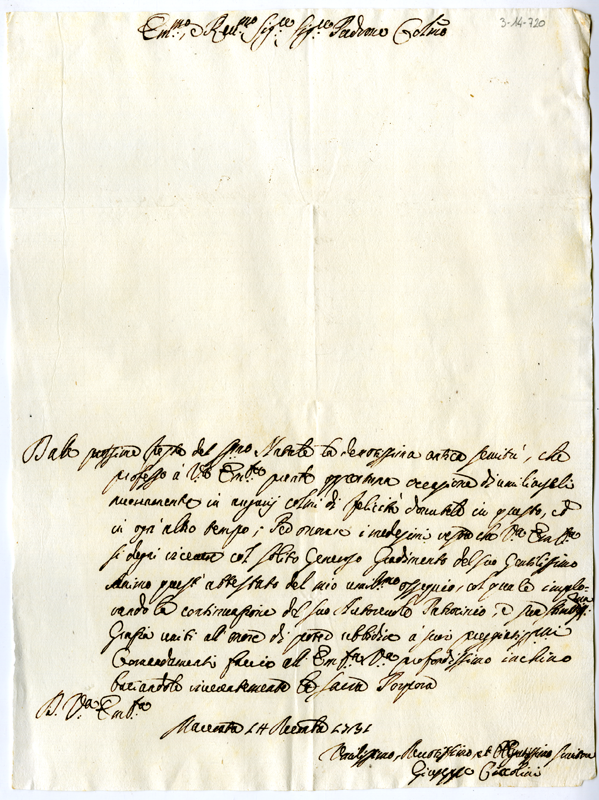 3-14-720
Em.mo, e Rev.mo Sig.re Sig.re Padrone Colmo
Dalle prossime feste del S.mo Natale la devotissima antica servitù, che
professo à V.ra Em.za prende opportuna occasione di umiliargli
nuovamente in augurij colmi di felicità donatele in questo, ed
in ogn'altro tempo; Ed onorare i medesimi V.ra Em.za
si degni col solito Generoso Gradimento del suo Gentilissimo
Animo quest'attestato del mio umil.mo ossequio, col quale implo-
rando la continuazione del suo Autorevole Patrocinio, e sua
Grazia uniti al onore di poter ubbidire a suoi pregiatissimi
Comandamenti faccio all Em.za V.ra profondissimo inchino
baciandole riverentemente la Sacra Porpora
D. V.ra Em.za
Macerata 14 Decembre 1731
Umilissimo, Devotissimo, et Servitore
Giuseppe